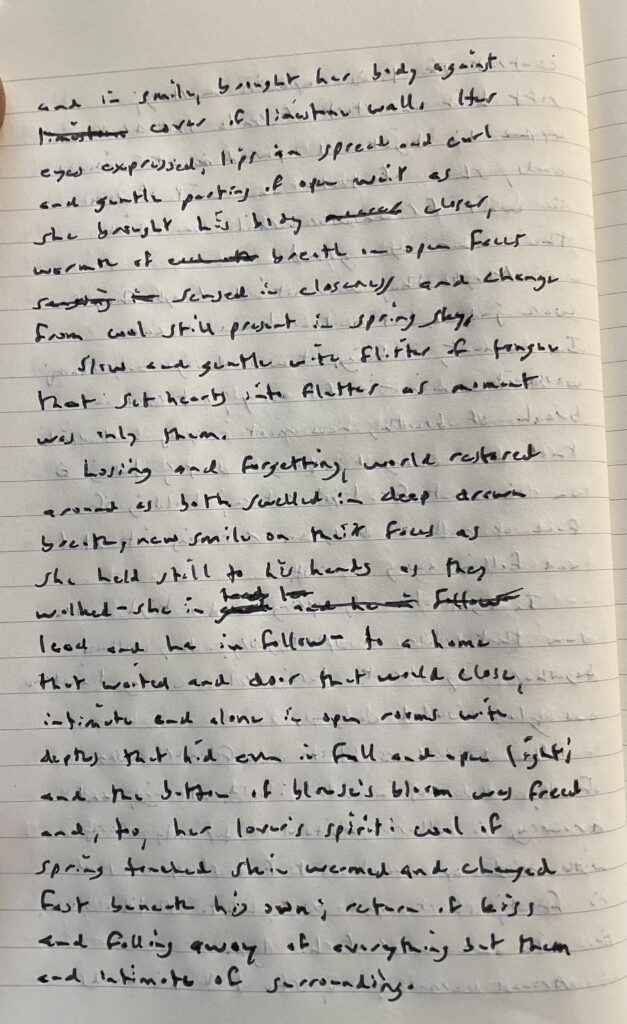 and in smile, brought her body against
limestone cover of limestone wall. Her
eyes expressed, lips in spread and curl
and gentle parting of open wait as
she brought his body closer,
warmth of breath on open faces
sensing in sensed in closeness and change
from cool still present in spring sky.
Slow and gentle with flitter of tongue
that set hearts into flutter as moment
was only them.
Losing and forgetting, world restored
around as both swelled in deep drawn
breath, new smile on their faces as
she held still to his hands as they
walked - she in and he in follow
lead and he in follow - to a home
that waited and door that would close,
intimate and alone in open rooms with
depths that hid even in full and open light;
and the button of blouse's bloom was freed
and, too, her lover's spirit: cool of
spring touched skin warmed and changed
fast beneath his own; return of kiss
and falling away of everything but them
and intimate of surrounding.